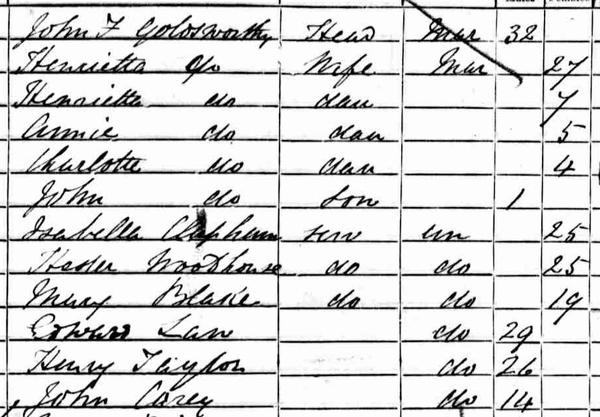 John F Goldsworthy Head Mar 32
Henrietta Do Wife Mar 27
Henrietta do dau 7
Annie do dau 5
Charlotte do dau 4
John do Son 1
Isabella Clapham serv un 25
Hester Woodhouse do do 25
Mary Blake do do 19
Edward Law do 29
Henry Taylor do 26
John Carey do 14